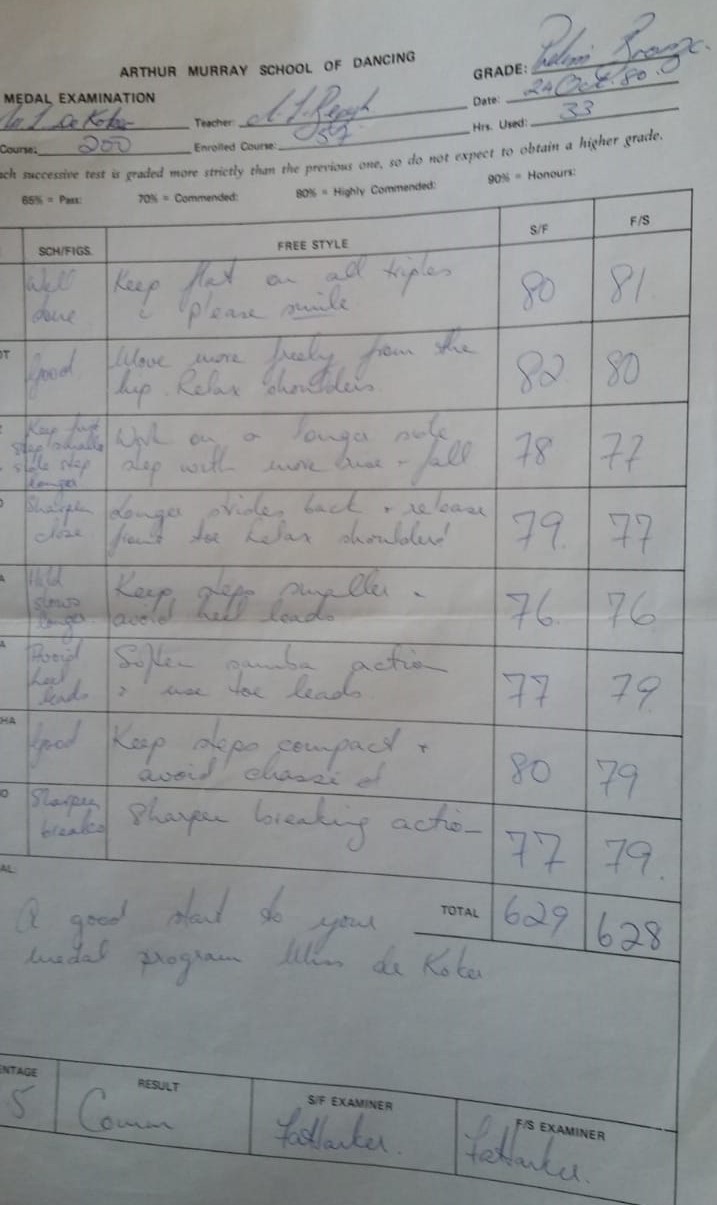 ARTHUR MURRAY SCHOOL OF DANCING
GRADE: Prelim Bronze.
MEDAL EXAMINATION
Date: 24 Oct. 80.
L De Koker Teacher:
Hrs. Used: 33
Course: 200 Enrolled Course: 57
ch successive test is graded more strictly than the previous one, so do not expect to obtain a higher grade.
65% = Pass: 70% = Commended: 80% = Highly Commended: 90% = Honours:
SCH/FIGS. FREE STYLE S/F F/S
Well Keep flat on all triples 80 81
done & please smile
OT Good Move more freely from the 82 80
hip. Relax shoulders
Keep first Work on a longer side 78 77
step smaller step with more rise + fall
side step
longer
Sharpen Longer strides back + release 79. 77
close front toe Relax shoulders!
Hold Keep steps smaller + 76 76
slows avoid heel leads
longer
A Avoid Soften samba action 77 79
heel & use toe leads
leads
HA Good Keep steps compact + 80 79
avoid chassé
O Sharpen Sharper breaking action 77 79.
breaks
AL:
A good start to your TOTAL 629 628
medal program Miss de Koker
ENTAGE RESULT S/F EXAMINER F/S EXAMINER
5 Comm FaHarker. FaHarker.